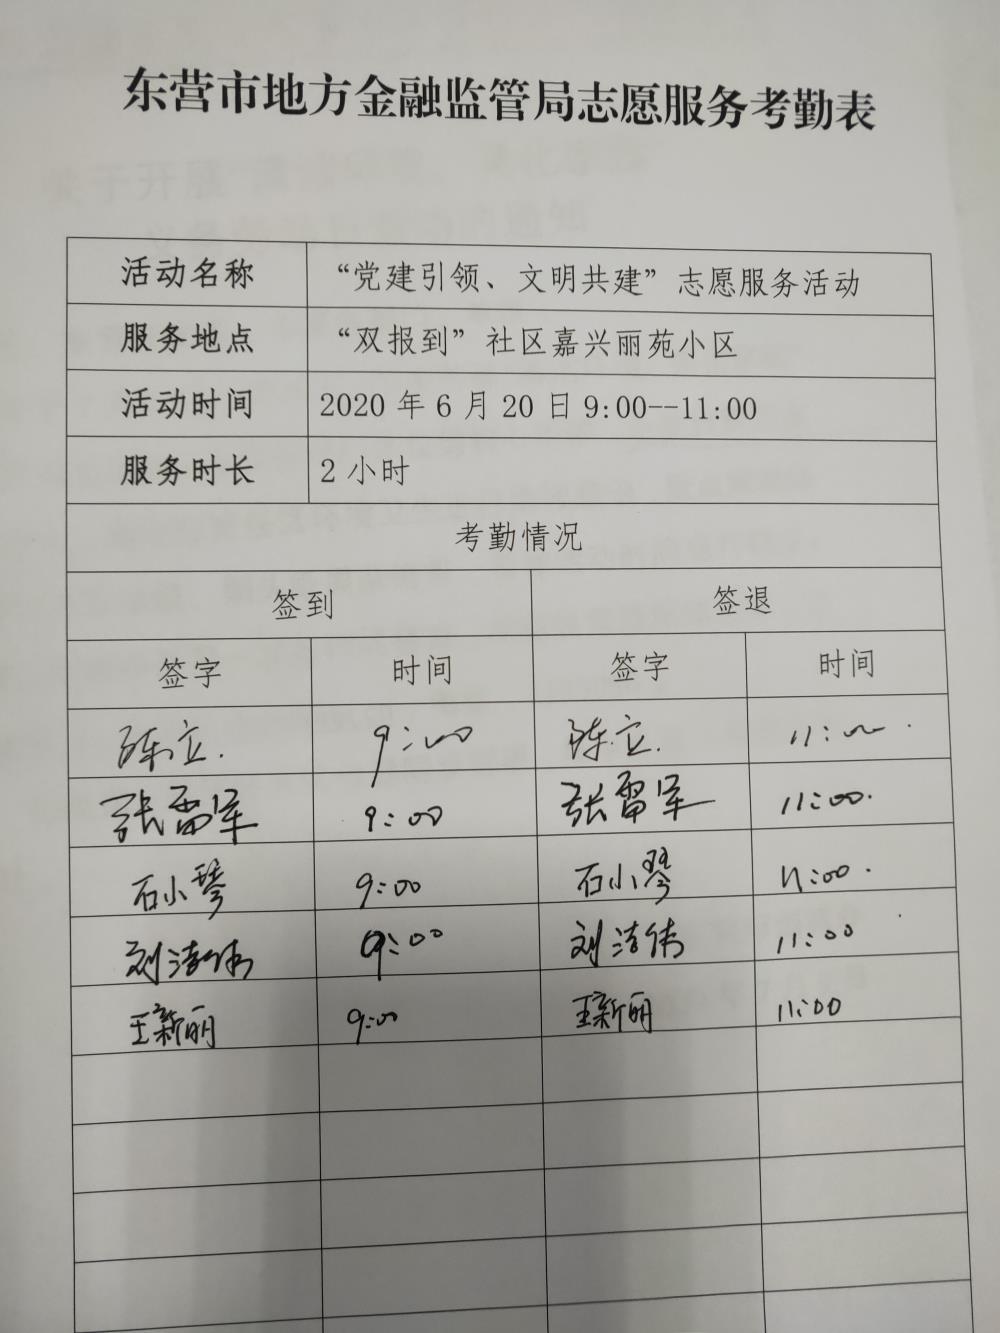 东营市地方金融监管局志愿服务考勤表
活动名称 “党建引领、文明共建”志愿服务活动
服务地点 “双报到”社区嘉兴丽苑小区
活动时间 2020 年 6 月 20 日 9:00--11:00
服务时长 2 小时
考勤情况
签到 签退
签字 时间 签字 时间
陈立. 9:00 陈立. 11:00
张雷军 9:00 张雷军 11:00.
石小琴 9:00 石小琴 11:00.
刘洁伟 9:00 刘洁伟 11:00
王新丽 9:00 王新丽 11:00